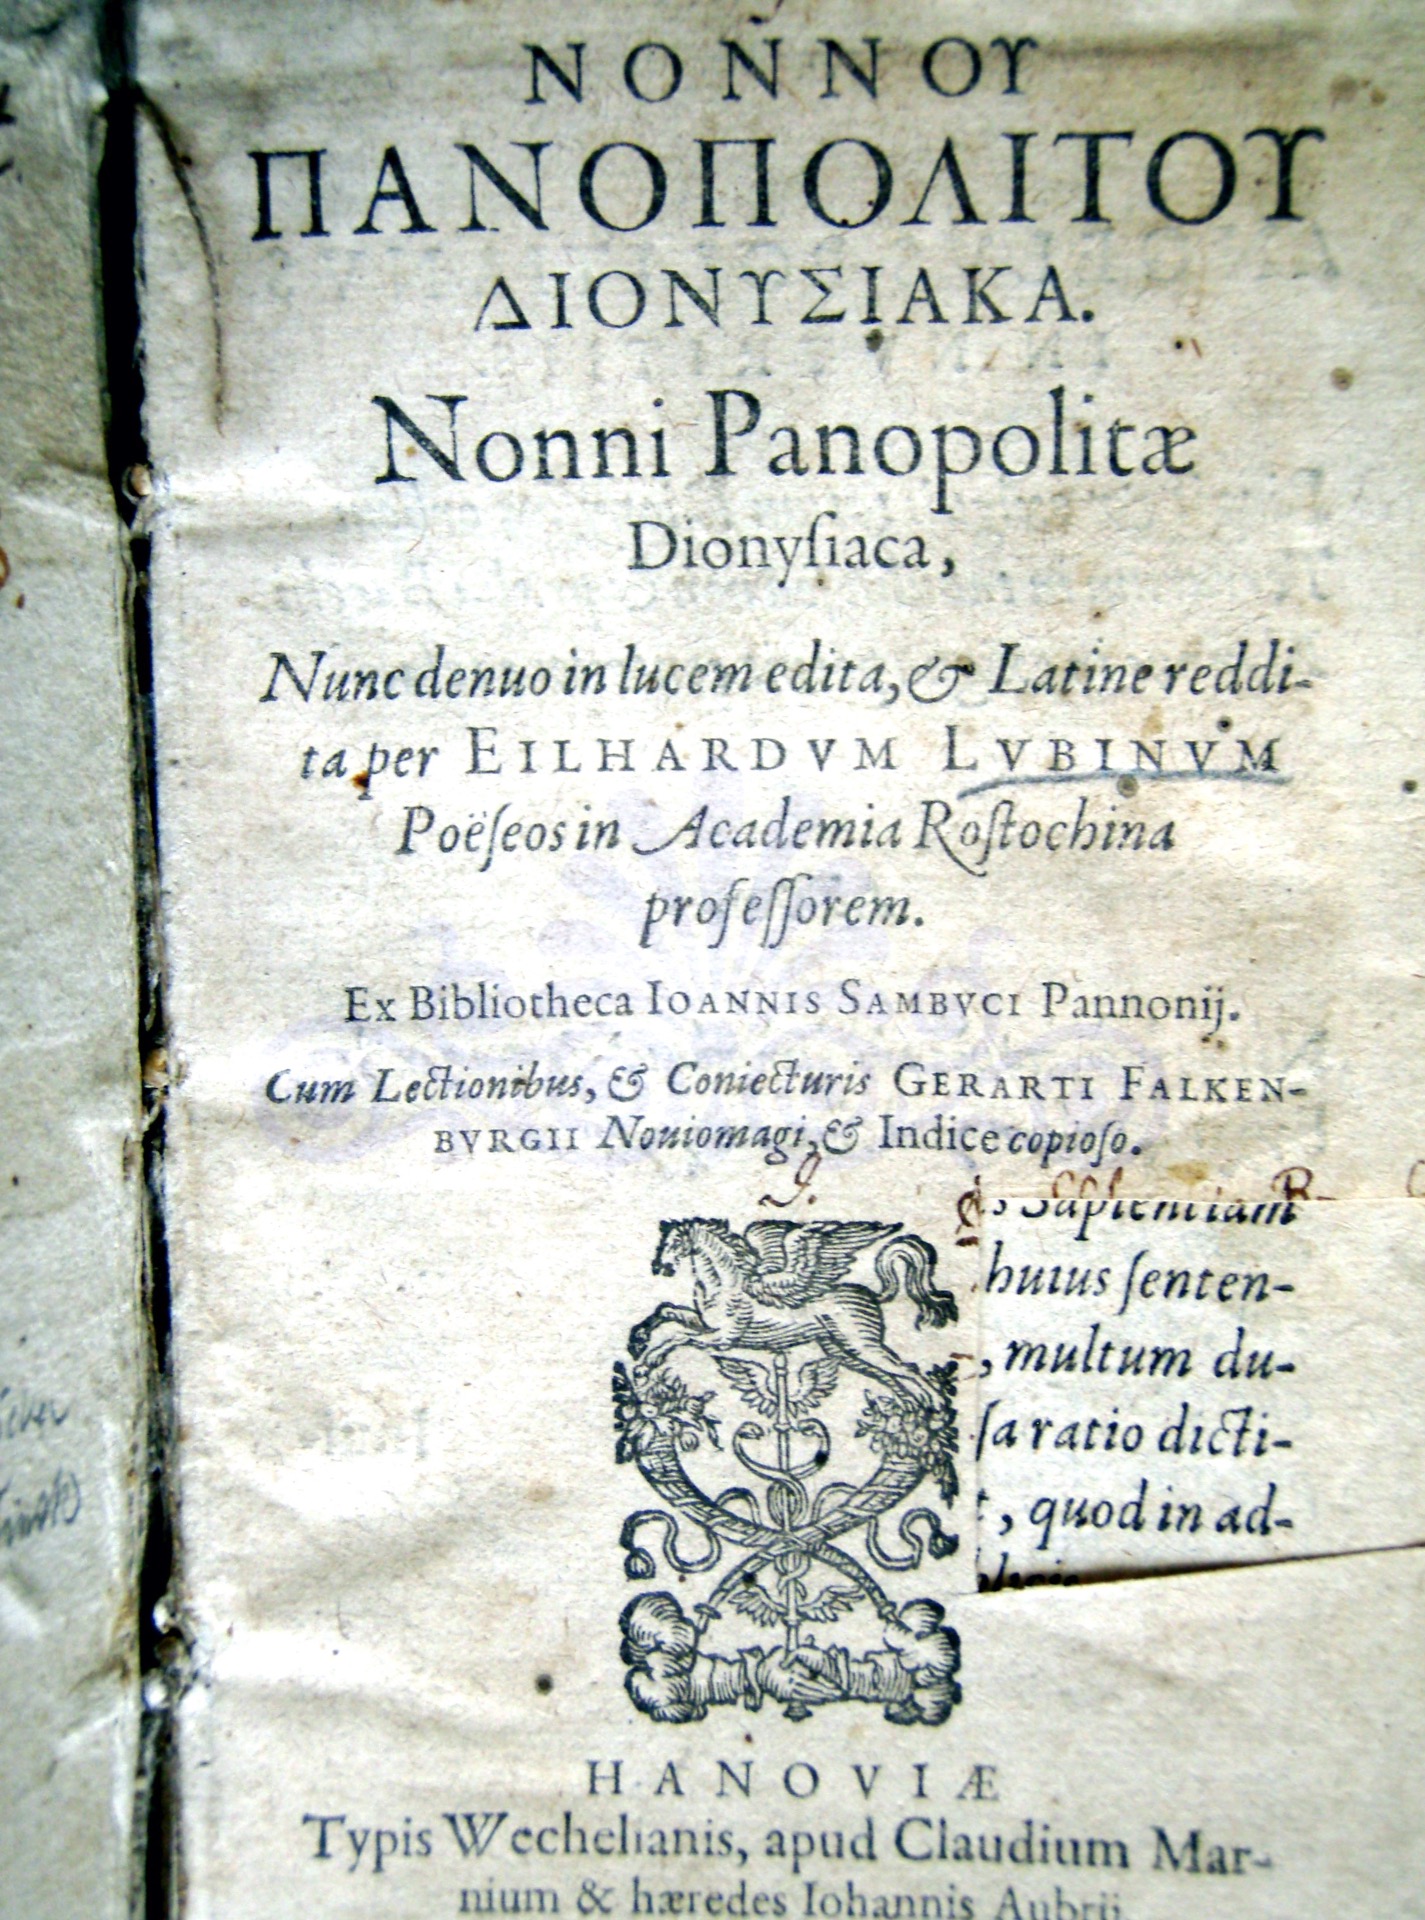 ΝΟΝΝΟΥ
ΠΑΝΟΠΟΛΙΤΟΥ
ΔΙΟΝΥΣΙΑΚΑ.
Nonni Panopolitæ
Dionyſiaca,
Nunc denuo in lucem edita, & Latine reddi-
ta per EILHARDVM LVBINVM
Poëſeos in Academia Roſtochina
profeſſorem.
Ex Bibliotheca IOANNIS SAMBVCI Pannonij.
Cum Lectionibus, & Coniecturis GERARTI FALKEN-
BVRGII Nouiomagi, & Indice copioſo.
Sapientiam
huius ſenten-
, multum du-
ſa ratio dicti-
, quod in ad-
HANOVIÆ
Typis Wechelianis, apud Claudium Mar-
nium & hæredes Iohannis Aubrij.